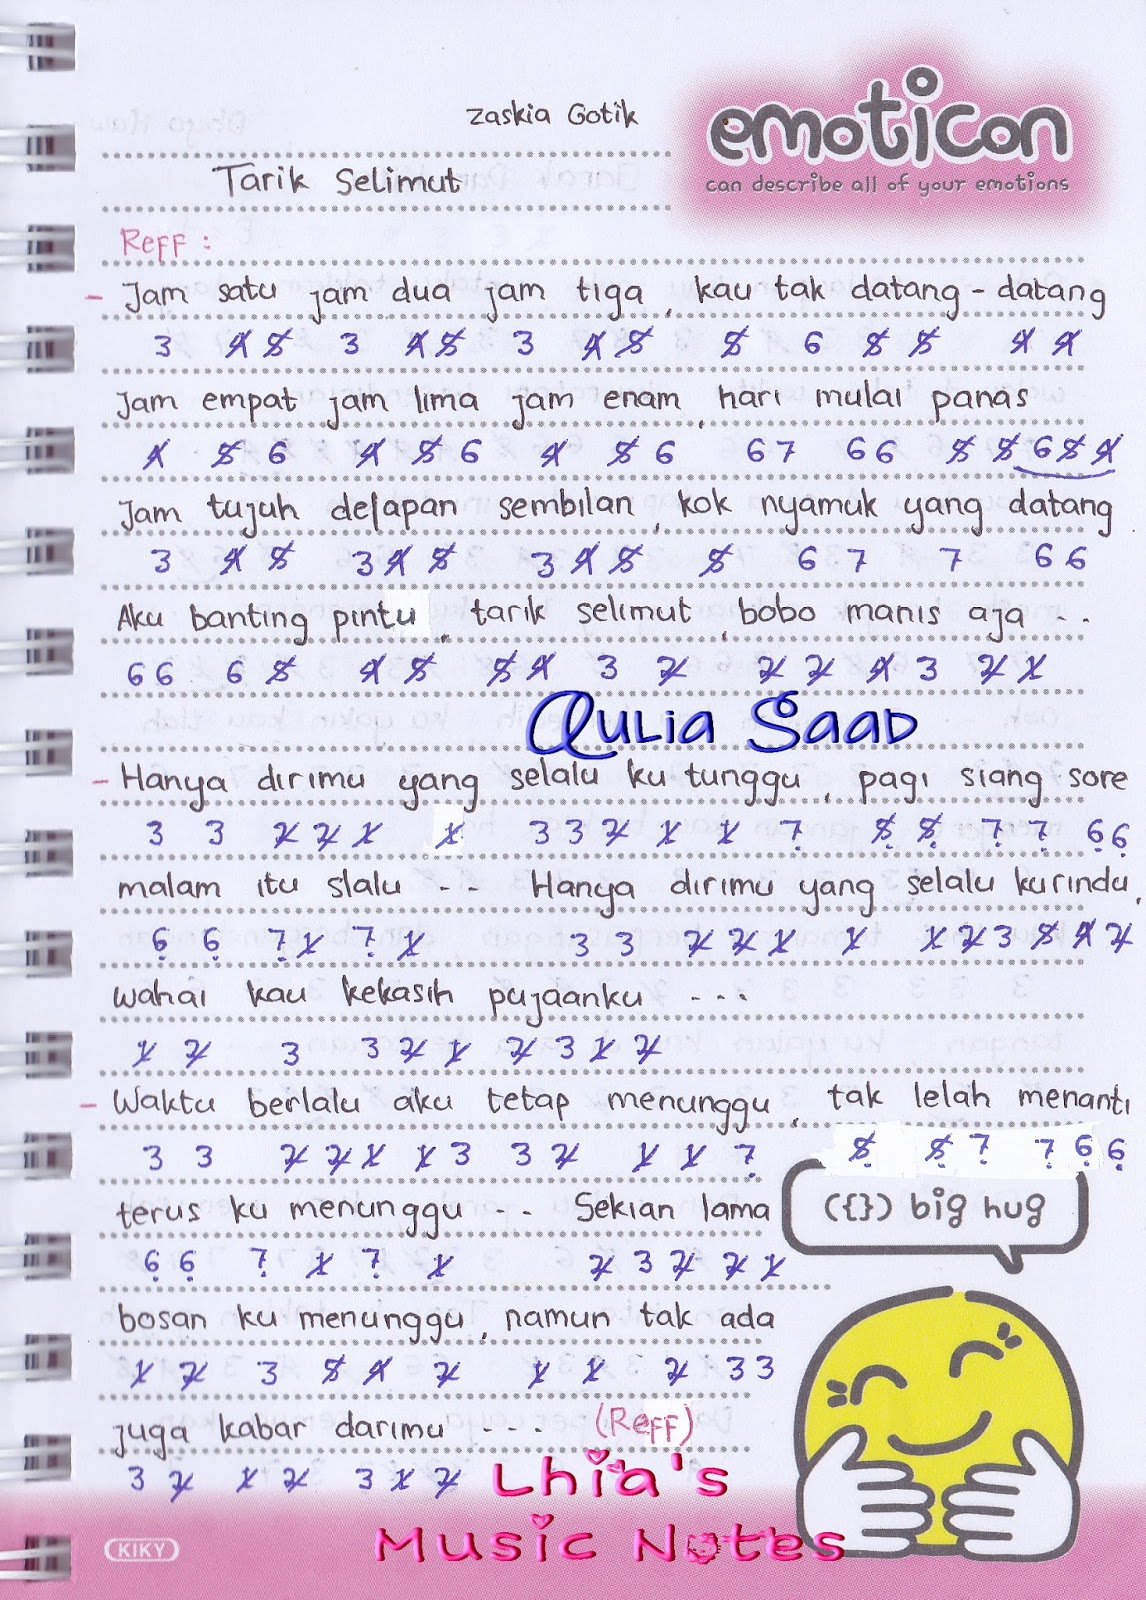 Zaskia Gotik
emoticon
can describe all of your emotions
Tarik Selimut
Reff :
- Jam satu jam dua jam tiga, kau tak datang - datang
3 4̸ 5̸ 3 4̸ 5̸ 3 4̸ 5̸ 5̸ 6 5̸ 5̸ 4̸ 4̸
Jam empat jam lima jam enam, hari mulai panas
4̸ 5̸ 6 4̸ 5̸ 6 4̸ 5̸ 6 6 7 6 6 5̸ 5̸ 6 5̸ 4̸
Jam tujuh delapan sembilan, kok nyamuk yang datang
3 4̸ 5̸ 3 4̸ 5̸ 3 4̸ 5̸ 5̸ 6 7 7 6 6
Aku banting pintu, tarik selimut, bobo manis aja . .
6 6 6 5̸ 4̸ 5̸ 5̸ 4̸ 3 2̸ 2̸ 2̸ 4̸ 3 2̸ 1̸
Aulia Saad
- Hanya dirimu yang selalu ku tunggu, pagi siang sore
3 3 2̸ 2̸ 1̸ 1̸ 3 3 2̸ 1̸ 1̸ 7̣ 5̸̣ 5̸̣ 7̣ 7̣ 6̣ 6̣
malam itu slalu . . . Hanya dirimu yang selalu kurindu,
6̣ 6̣ 7̣ 1̸ 7̣ 1̸ 3 3 2̸ 2̸ 1̸ 1̸ 1̸ 2̸ 3 5̸ 4̸ 2̸
wahai kau kekasih pujaanku . . . .
1̸ 2̸ 3 3 2̸ 1̸ 2̸ 3 1̸ 2̸
- Waktu berlalu aku tetap menunggu, tak lelah menanti
3 3 2̸ 2̸ 1̸ 1̸ 3 3 2̸ 1̸ 1̸ 7̣ 5̸̣ 5̸̣ 7̣ 7̣ 6̣ 6̣
terus ku menunggu . . . Sekian lama
6̣ 6̣ 7̣ 1̸ 7̣ 1̸ 2̸ 3 2̸ 2̸ 1̸
({}) big hug
bosan ku menunggu, namun tak ada
1̸ 2̸ 3 5̸ 4̸ 2̸ 1̸ 1̸ 2̸ 3 3
juga kabar darimu . . . . (Reff)
3 2̸ 1̸ 2̸ 3 1̸ 2̸
Lhia's
Music Notes
KIKY